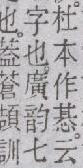 。杜本作惎。云
字也。廣韵七
也。葢蒼頡訓